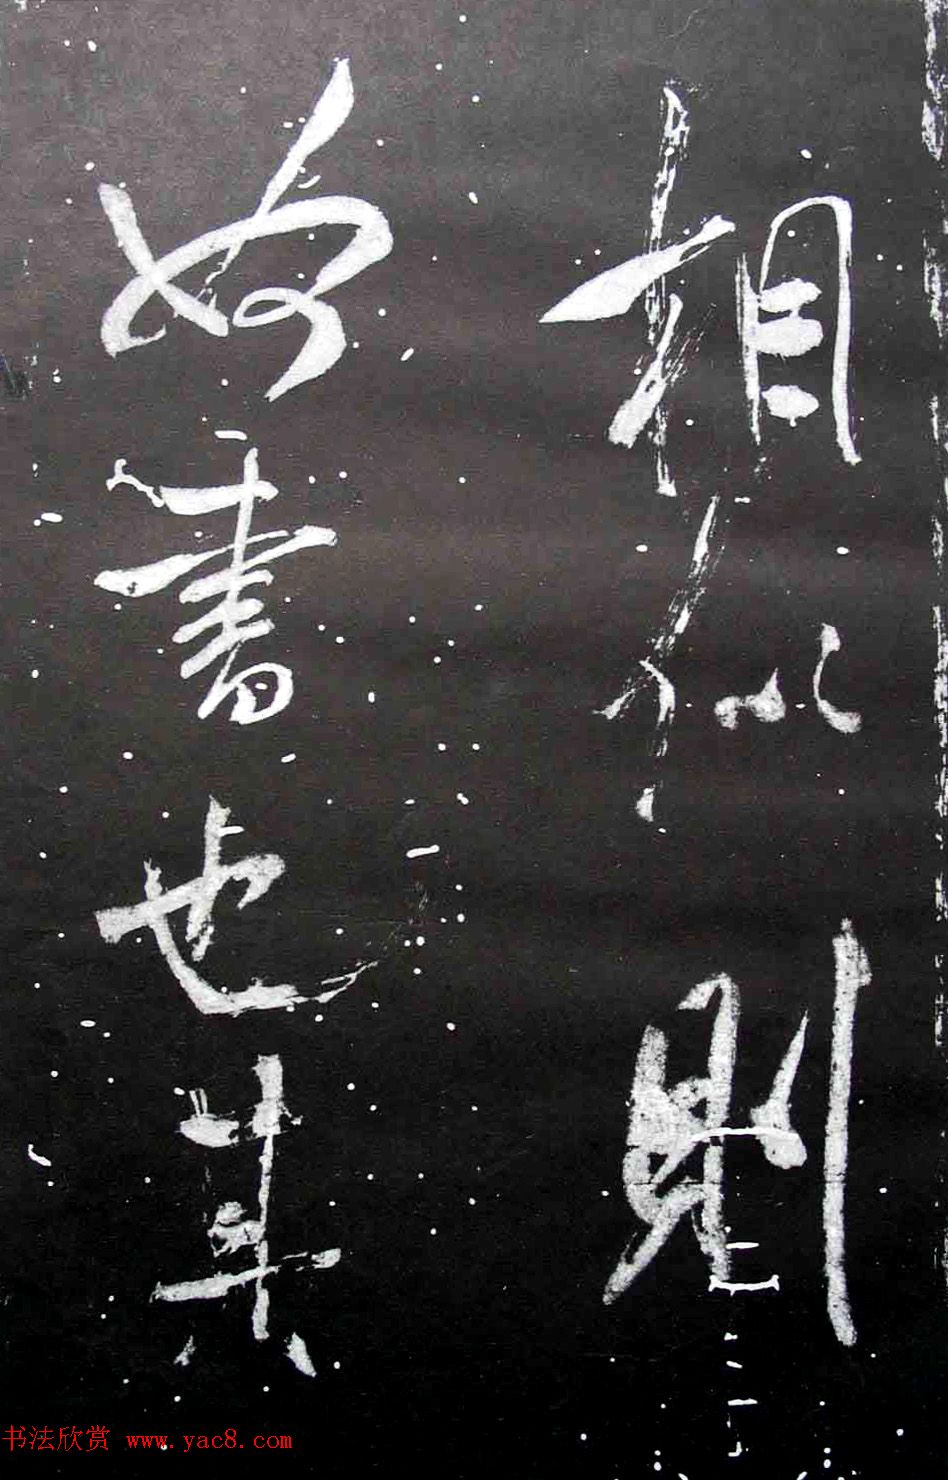 相似則
奴書也其
书法欣赏 www.yac8.com